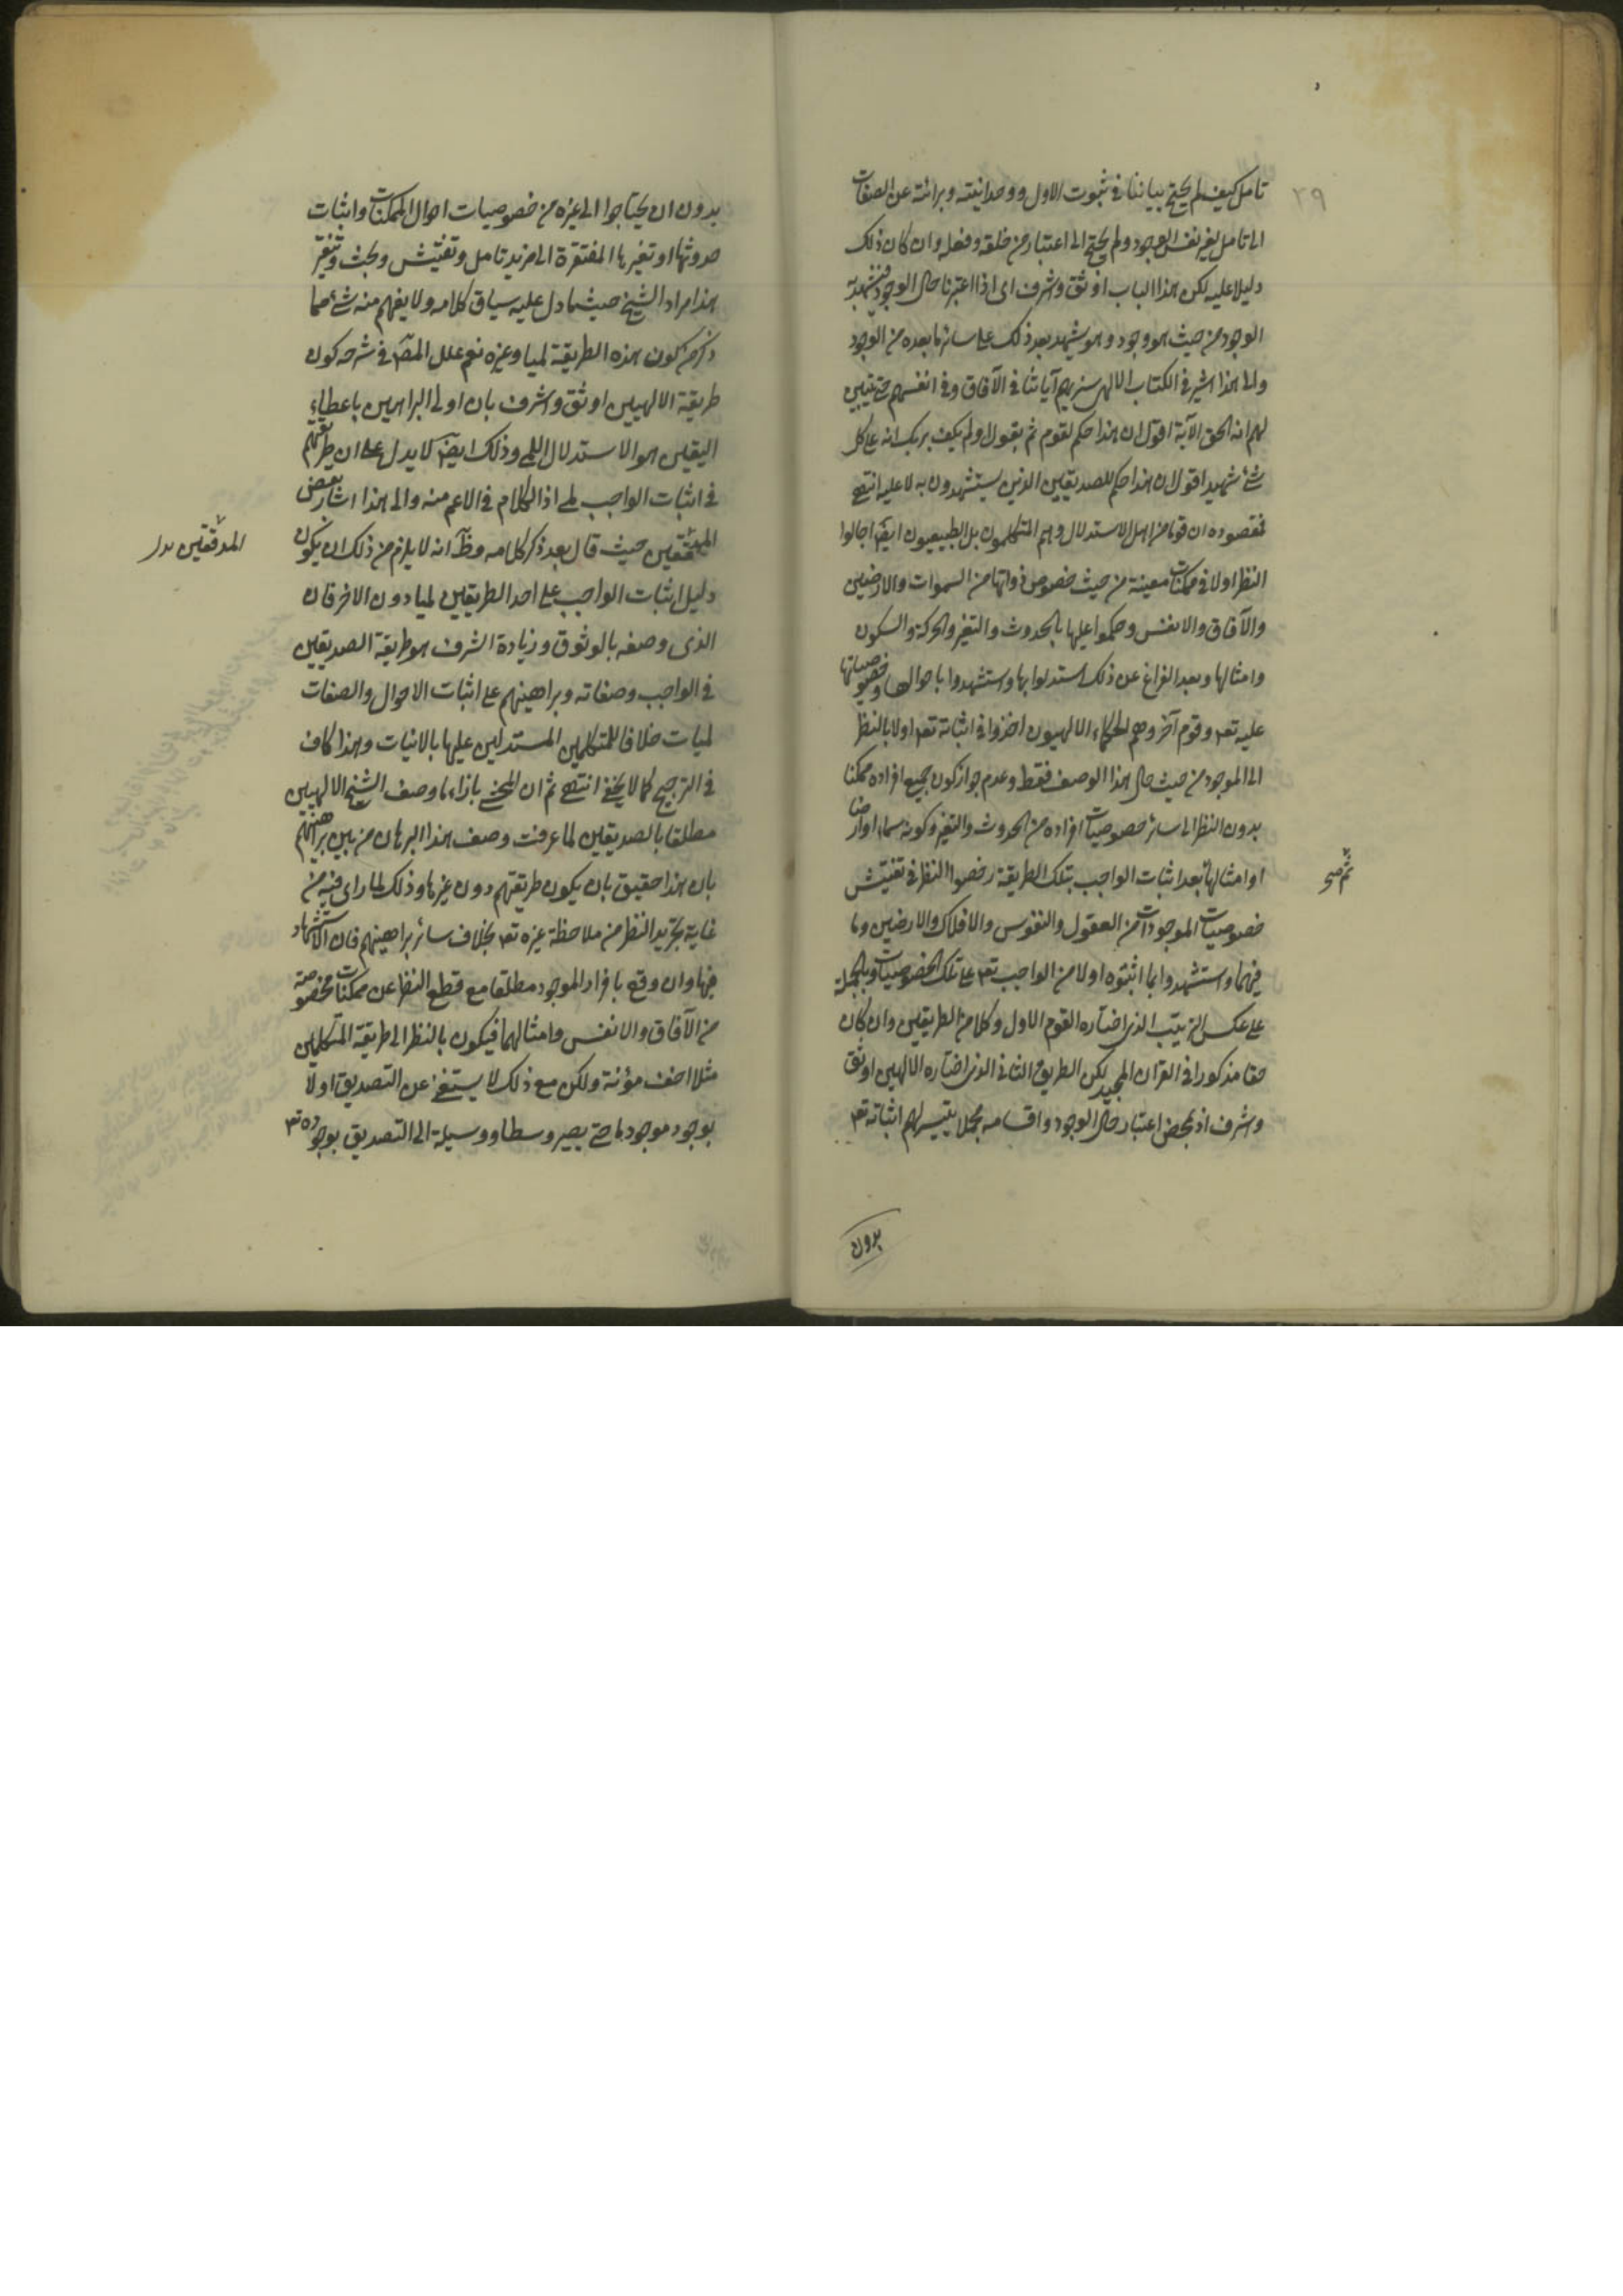 ٢٩
تامل كيف لم يحتج بياننا فى ثبوت الاول ووحدانيته وبرائته عن الصفات
الى تامل لغير نفس الوجود ولم يحتج الى اعتبار من خلقه وفعله وان كان ذلك
دليلا عليه لكن هذا الباب اوثق واشرف اى اذا اعتبرنا حال الوجود فيشهد به
الوجود من حيث هو وجود وهو يشهد بعد ذلك على سائر ما بعده من الوجود
والى هذا اشير فى الكتاب الالهى سنريهم آياتنا فى الآفاق وفى انفسهم حتى يتبين
لهم انه الحق الآية اقول ان هذا حكم لقوم ثم يقول اولم يكف بربك انه على كل
شئ شهيد اقول ان هذا حكم للصديقين الذين يستشهدون به لا عليه انتهى
فمقصوده ان قوما من اهل الاستدلال وهم المتكلمون بل الطبيعيون ايضا اجالوا
النظر اولا فى ممكنات معينة من حيث خصوص ذواتها من السموات والارضين
والآفاق والانفس وحكموا عليها بالحدوث والتغير والحركة والسكون
وامثالها وبعد الفراغ عن ذلك استدلوا بها واستشهدوا باحوالها وخصوصياتها
عليه تعـ وقوم آخر وهم الحكماء الالهيون اخذوا فى اثباته تعـ اولا بالنظر
الى الموجود من حيث حال هذا الوصف فقط وعدم جواز كون جميع افراده ممكنا
بدون النظر الى سائر خصوصيات افراده من الحدوث والتغير وكونه سماء او ارضا
او امثالها ثم بعد اثبات الواجب بتلك الطريقة رخصوا النظر فى تفتيش
ثم صح
خصوصيات الموجودات من العقول والنفوس والافلاك والارضين وما
فيهما واستشهدوا بما اثبتوه اولا من الواجب تعـ على تلك الخصوصيات وبالجملة
على عكس الترتيب الذى اختاره القوم الاول وكلا من الطريقين وان كان
حقا مذكورا فى القرآن المجيد لكن الطريق الثانى الذى اختاره الالهين اوثق
واشرف اذ بمحض اعتبار حال الوجود واقسامه مجملا يتيسر لهم اثباته تعـ
بدون
بدون ان يحتاجوا الى غيره من خصوصيات احوال الممكنات واثبات
حدوثها او تغيرها المفتقرة الى مزيد تامل وتفتيش وبحث وتنقير
هذا مراد الشيخ حيثما دل عليه سياق كلامه ولا يفهم منه شئ مما
ذكر من كون هذه الطريقة لميا وغيره نعم علل المصـ فى شرحه كون
طريقة الالهيين اوثق واشرف بان اولى البراهين باعطاء
اليقين هو الاستدلال اللمى وذلك ايضا لا يدل على ان طريقهم
فى اثبات الواجب لمى اذ الكلام فى الاعم منه والى هذا اشار بعض
المحققين حيث قال بعد ذكر كلامه وظـ انه لا يلزم من ذلك ان يكون
المدققين بدل
دليل اثبات الواجب على احد الطريقين لميا دون الاخر فان
الذى وصفه بالوثوق وزيادة الشرف هو طريقة الصديقين
فى الواجب وصفاته وبراهينهم على اثبات الاحوال والصفات
لميات خلافا للمتكلمين المستدلين عليها بالانيات وهذا كاف
فى الترجيح كما لا يخفى انتهى ثم ان المحشى بازاء ما وصف الشيخ الالهيين
مطلقا بالصديقين لما عرفت وصف هذا البرهان من بين براهينهم
بان هذا حقيق بان يكون طريقتهم دون غيرها وذلك لما راى فيه من
غاية تجريد النظر من ملاحظة غيره تعـ بخلاف سائر براهينهم فان الاستشهاد
فيها وان وقع بافراد الموجود مطلقا مع قطع النظر عن ممكنات مخصوصة
من الآفاق والانفس وامثالهما فيكون بالنظر الى طريقة المتكلمين
مثلا اخف مؤنة ولكن مع ذلك لا يستغنى عن التصديق اولا
بوجود موجود ما حتى يصير وسطا ووسيلة الى التصديق بوجوده تعـ